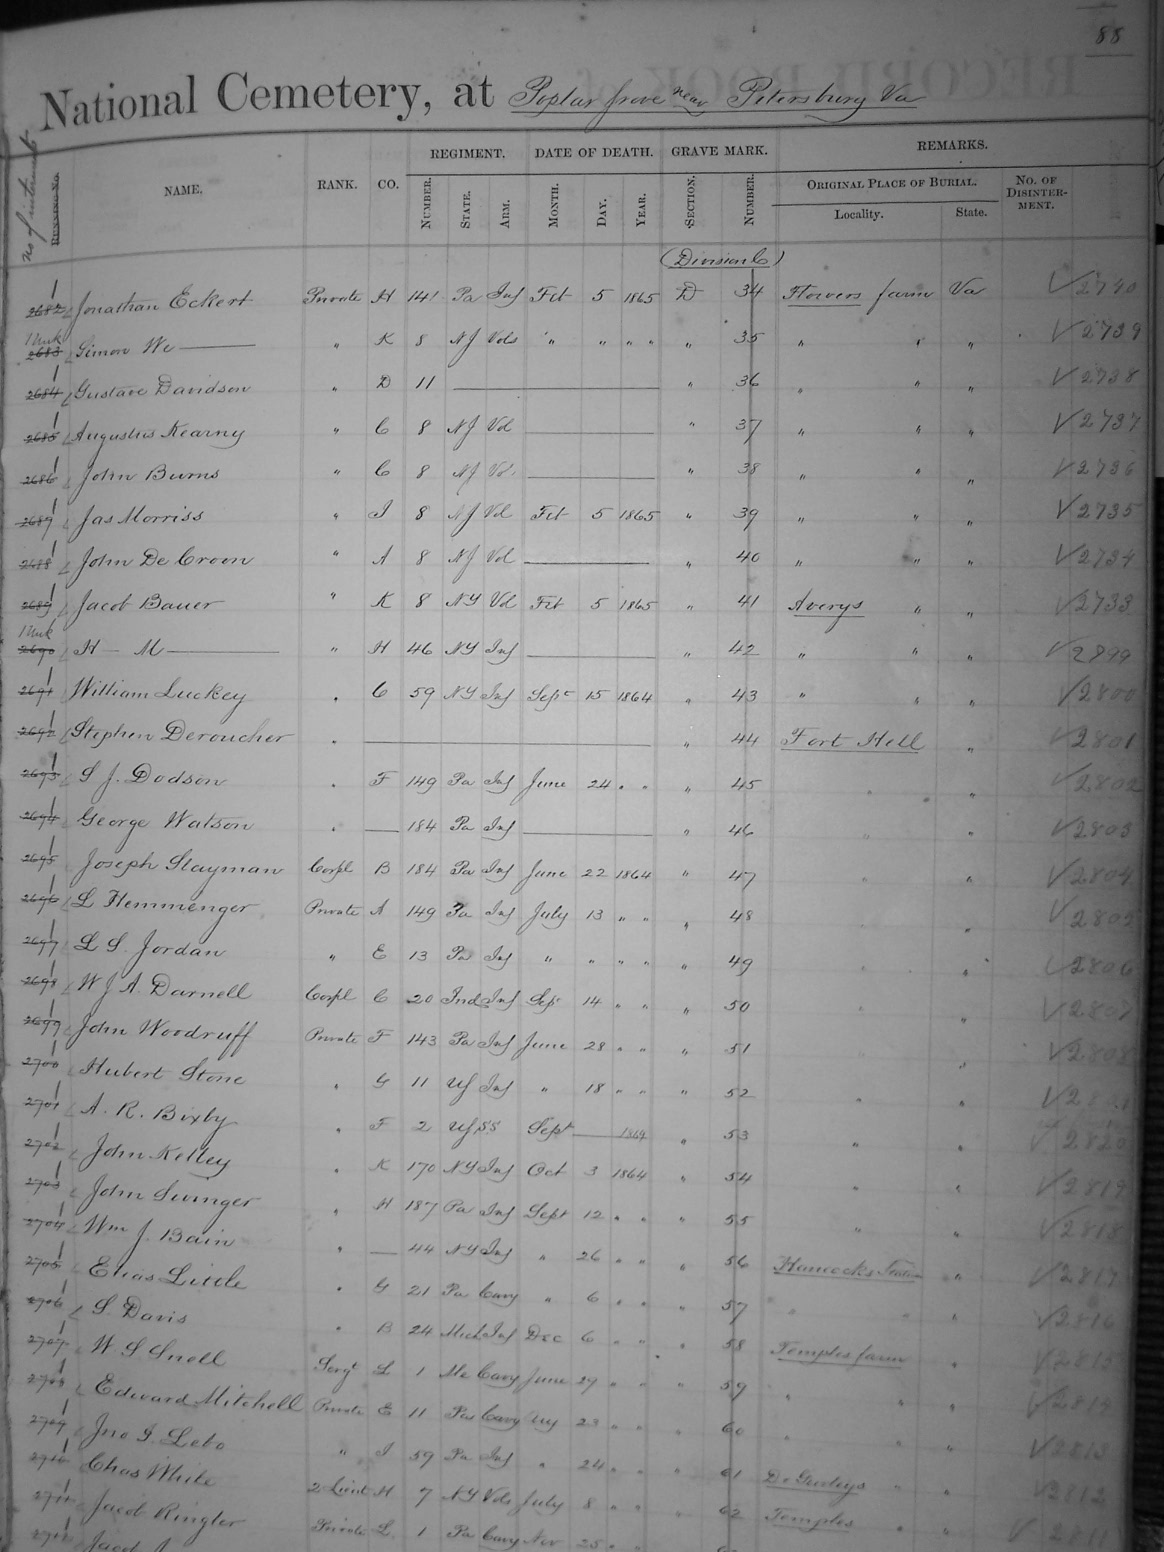 88
National Cemetery, at Poplar Grove near Petersburg Va
No of interment
NAME. RANK. CO. REGIMENT. DATE OF DEATH. GRAVE MARK. REMARKS.
NUMBER. STATE. ARM. MONTH. DAY. YEAR. SECTION. NUMBER. ORIGINAL PLACE OF BURIAL. NO. OF DISINTERMENT.
Locality. State.
(Division C)
2682 1 Jonathan Eckert Private H 141 Pa Inf Feb 5 1865 D 34 Flowers farm Va √2740
2683 1 Unk Simon We— " K 8 NJ Vols " " " " " 35 " " " √2739
2684 1 Gustave Davidson " D 11 — " 36 " " " √2738
2685 1 Augustus Kearny " C 8 NJ Vol — " 37 " " " √2737
2686 1 John Burns " C 8 NJ Vol — " 38 " " " √2736
2687 1 Jas Morriss " I 8 NJ Vol Feb 5 1865 " 39 " " " √2735
2688 1 John De Croon " A 8 NJ Vol — " 40 " " " √2734
2689 1 Jacob Bauer " K 8 NY Vol Feb 5 1865 " 41 Averys " " √2733
2690 1 Unk H— M— " H 46 NY Inf — " 42 " " " √2799
2691 1 William Luckey " C 59 NY Inf Sept 15 1864 " 43 " " " √2800
2692 1 Stephen Deroucher " — " 44 Fort Hell " √2801
2693 1 S J. Dodson " F 149 Pa Inf June 24 " " " 45 " " √2802
2694 1 George Watson " — 184 Pa Inf — " 46 " " √2803
2695 1 Joseph Slayman Corpl B 184 Pa Inf June 22 1864 " 47 " " √2804
2696 1 L Hemmenger Private A 149 Pa Inf July 13 " " " 48 " " √2805
2697 1 L S. Jordan " E 13 Pa Inf " " " " " 49 " " √2806
2698 1 W J A. Darnell Corpl C 20 Ind Inf Sep 14 " " " 50 " " √2807
2699 1 John Woodruff Private F 143 Pa Inf June 28 " " " 51 " " √2808
2700 1 Hubert Stone " G 11 US Inf " 18 " " " 52 " "
2701 1 A. R. Bixby " F 2 US SS Sept — 1864 " 53 " " √2820
2702 1 John Kelley " K 170 NY Inf Oct 3 1864 " 54 " " √2819
2703 1 John Swinger " H 187 Pa Inf Sept 12 " " " 55 " " √2818
2704 1 Wm J. Bain " — 44 NY Inf " 26 " " " 56 Hancocks Station " √2817
2705 1 Elias Little " G 21 Pa Cavy " 6 " " " 57 " " " √2816
2706 1 S. Davis " B 24 Mich Inf Dec 6 " " " 58 Temples farm " √2815
2707 1 W S Snell Sergt L 1 Me Cavy June 29 " " " 59 " " " √2814
2708 1 Edward Mitchell Private E 11 Pa Cavy Aug 23 " " " 60 " " " √2813
2709 1 Jno I. Lebo " I 59 Pa Inf " 24 " " " 61 Dr Gurleys " " √2812
2710 1 Chas White 2 Lieut H 7 NY Vols July 8 " " " 62 Temples " " √2811
2711 1 Jacob Ringler Private L 1 Pa Cavy Nov 25 " "
2712 Jacob